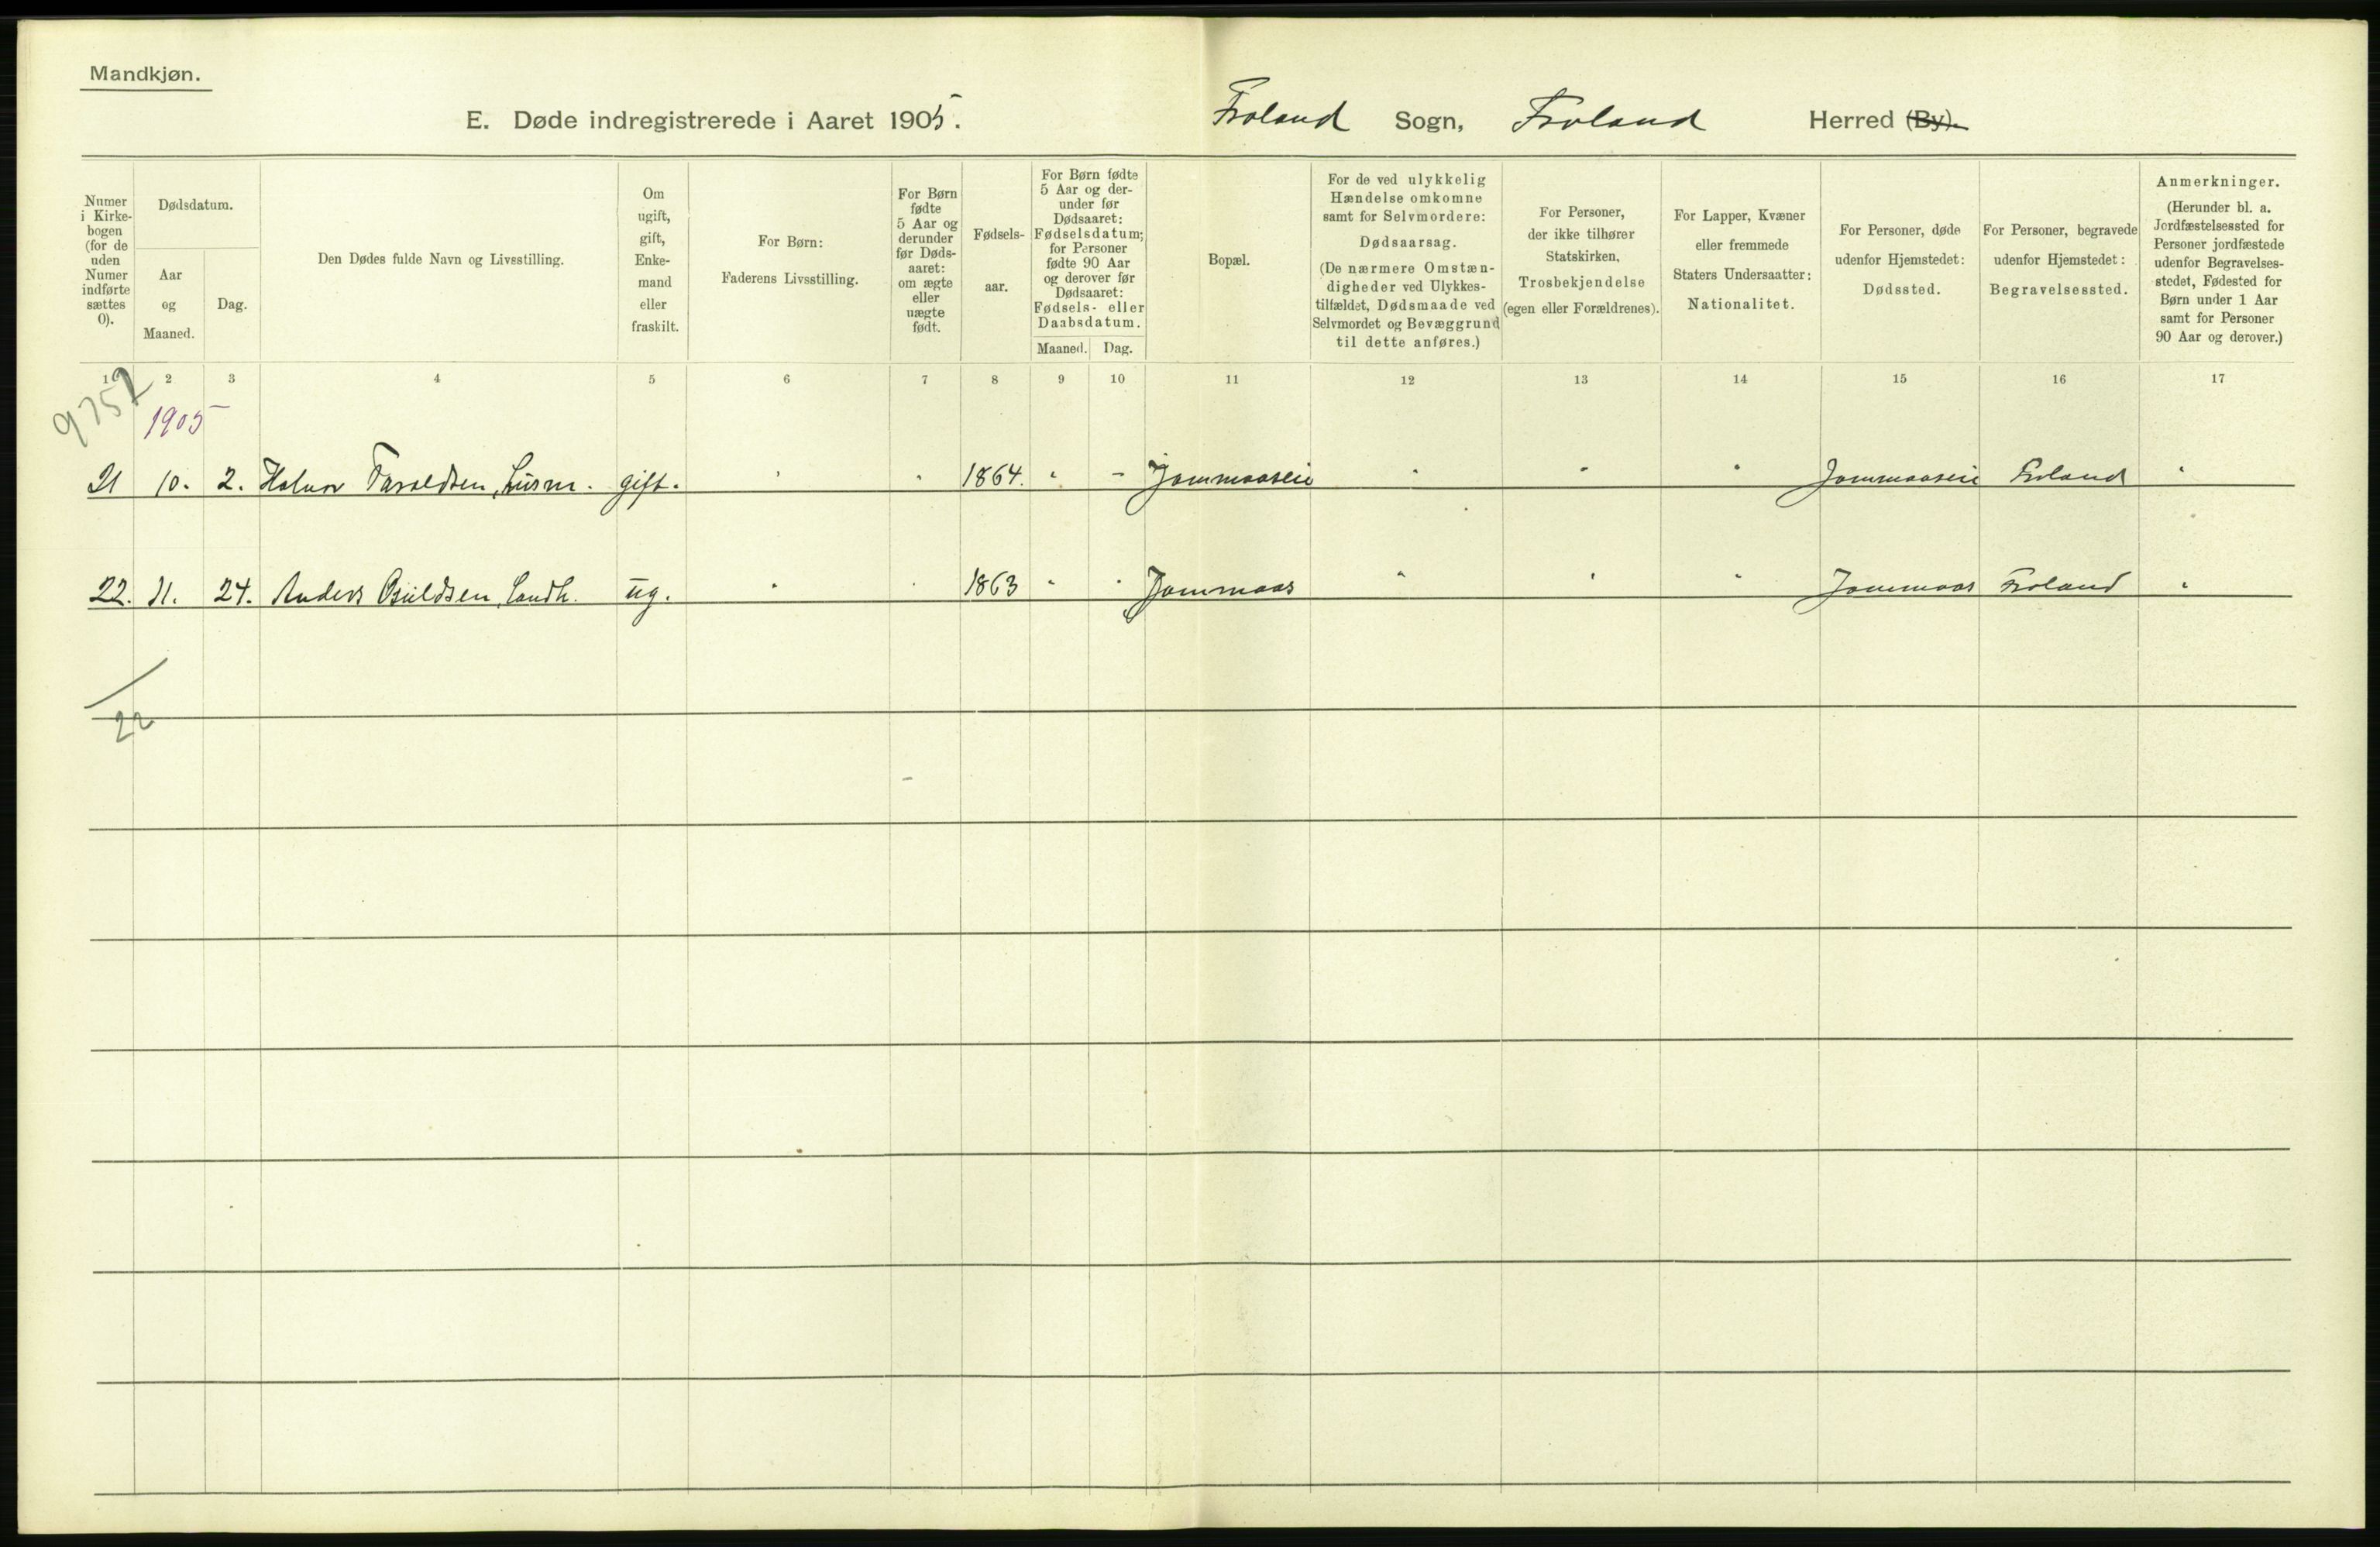 Mandkjøn.
E. Døde indregistrerede i Aaret 1905. Froland Sogn, Froland Herred (By).
Numer i Kirke-bogen (for de uden Numer indførte sættes 0).
Dødsdatum.
Aar og Maaned.
Dag.
Den Dødes fulde Navn og Livsstilling.
Om ugift, gift, Enke-mand eller fraskilt.
For Børn: Faderens Livsstilling.
For Børn fødte 5 Aar og derunder før Døds-aaret: om ægte eller uægte født.
Fødsels-aar.
For Børn fødte 5 Aar og der-under før Dødsaaret: Fødselsdatum; for Personer fødte 90 Aar og derover før Dødsaaret: Fødsels- eller Daabsdatum.
Maaned. Dag.
Bopæl.
For de ved ulykkelig Hændelse omkomne samt for Selvmordere: Dødsaarsag. (De nærmere Omstæn-digheder ved Ulykkes-tilfældet, Dødsmaade ved Selvmordet og Bevæggrund til dette anføres.)
For Personer, der ikke tilhører Statskirken, Trosbekjendelse (egen eller Forældrenes).
For Lapper, Kvæner eller fremmede Staters Undersaatter: Nationalitet.
For Personer, døde udenfor Hjemstedet: Dødssted.
For Personer, begravede udenfor Hjemstedet: Begravelsessted.
Anmerkninger. (Herunder bl. a. Jordfæstelsessted for Personer jordfæstede udenfor Begravelses-stedet, Fødested for Børn under 1 Aar samt for Personer 90 Aar og derover.)
1 2 3 4 5 6 7 8 9 10 11 12 13 14 15 16 17
1905
21 10. 2. Halvor Taraldsen, Husm. gift. " " 1864. " - Jommaaseie " " " Jommaaseie Froland "
22. 11. 24. Anders Osuldsen, Landh. ug. " " 1863 " " Jommaas " " " Jommaas Froland "
22